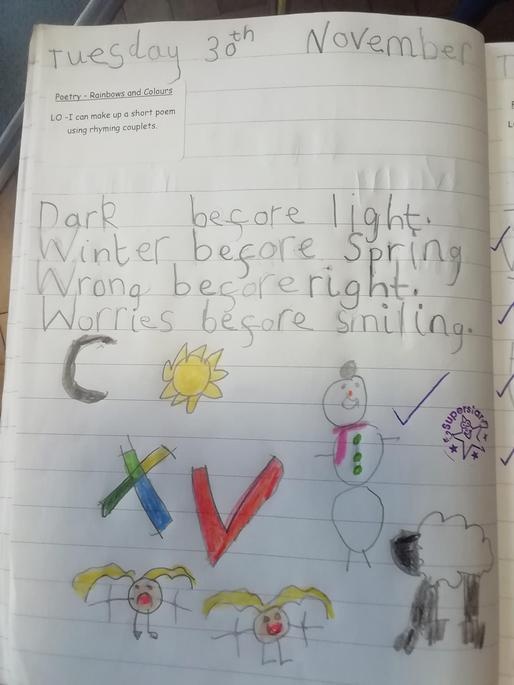 Tuesday 30th November
Poetry - Rainbows and Colours
LO -I can make up a short poem
using rhyming couplets.
Dark before light.
Winter before Spring
Wrong before right.
Worries before smiling.
Superstar